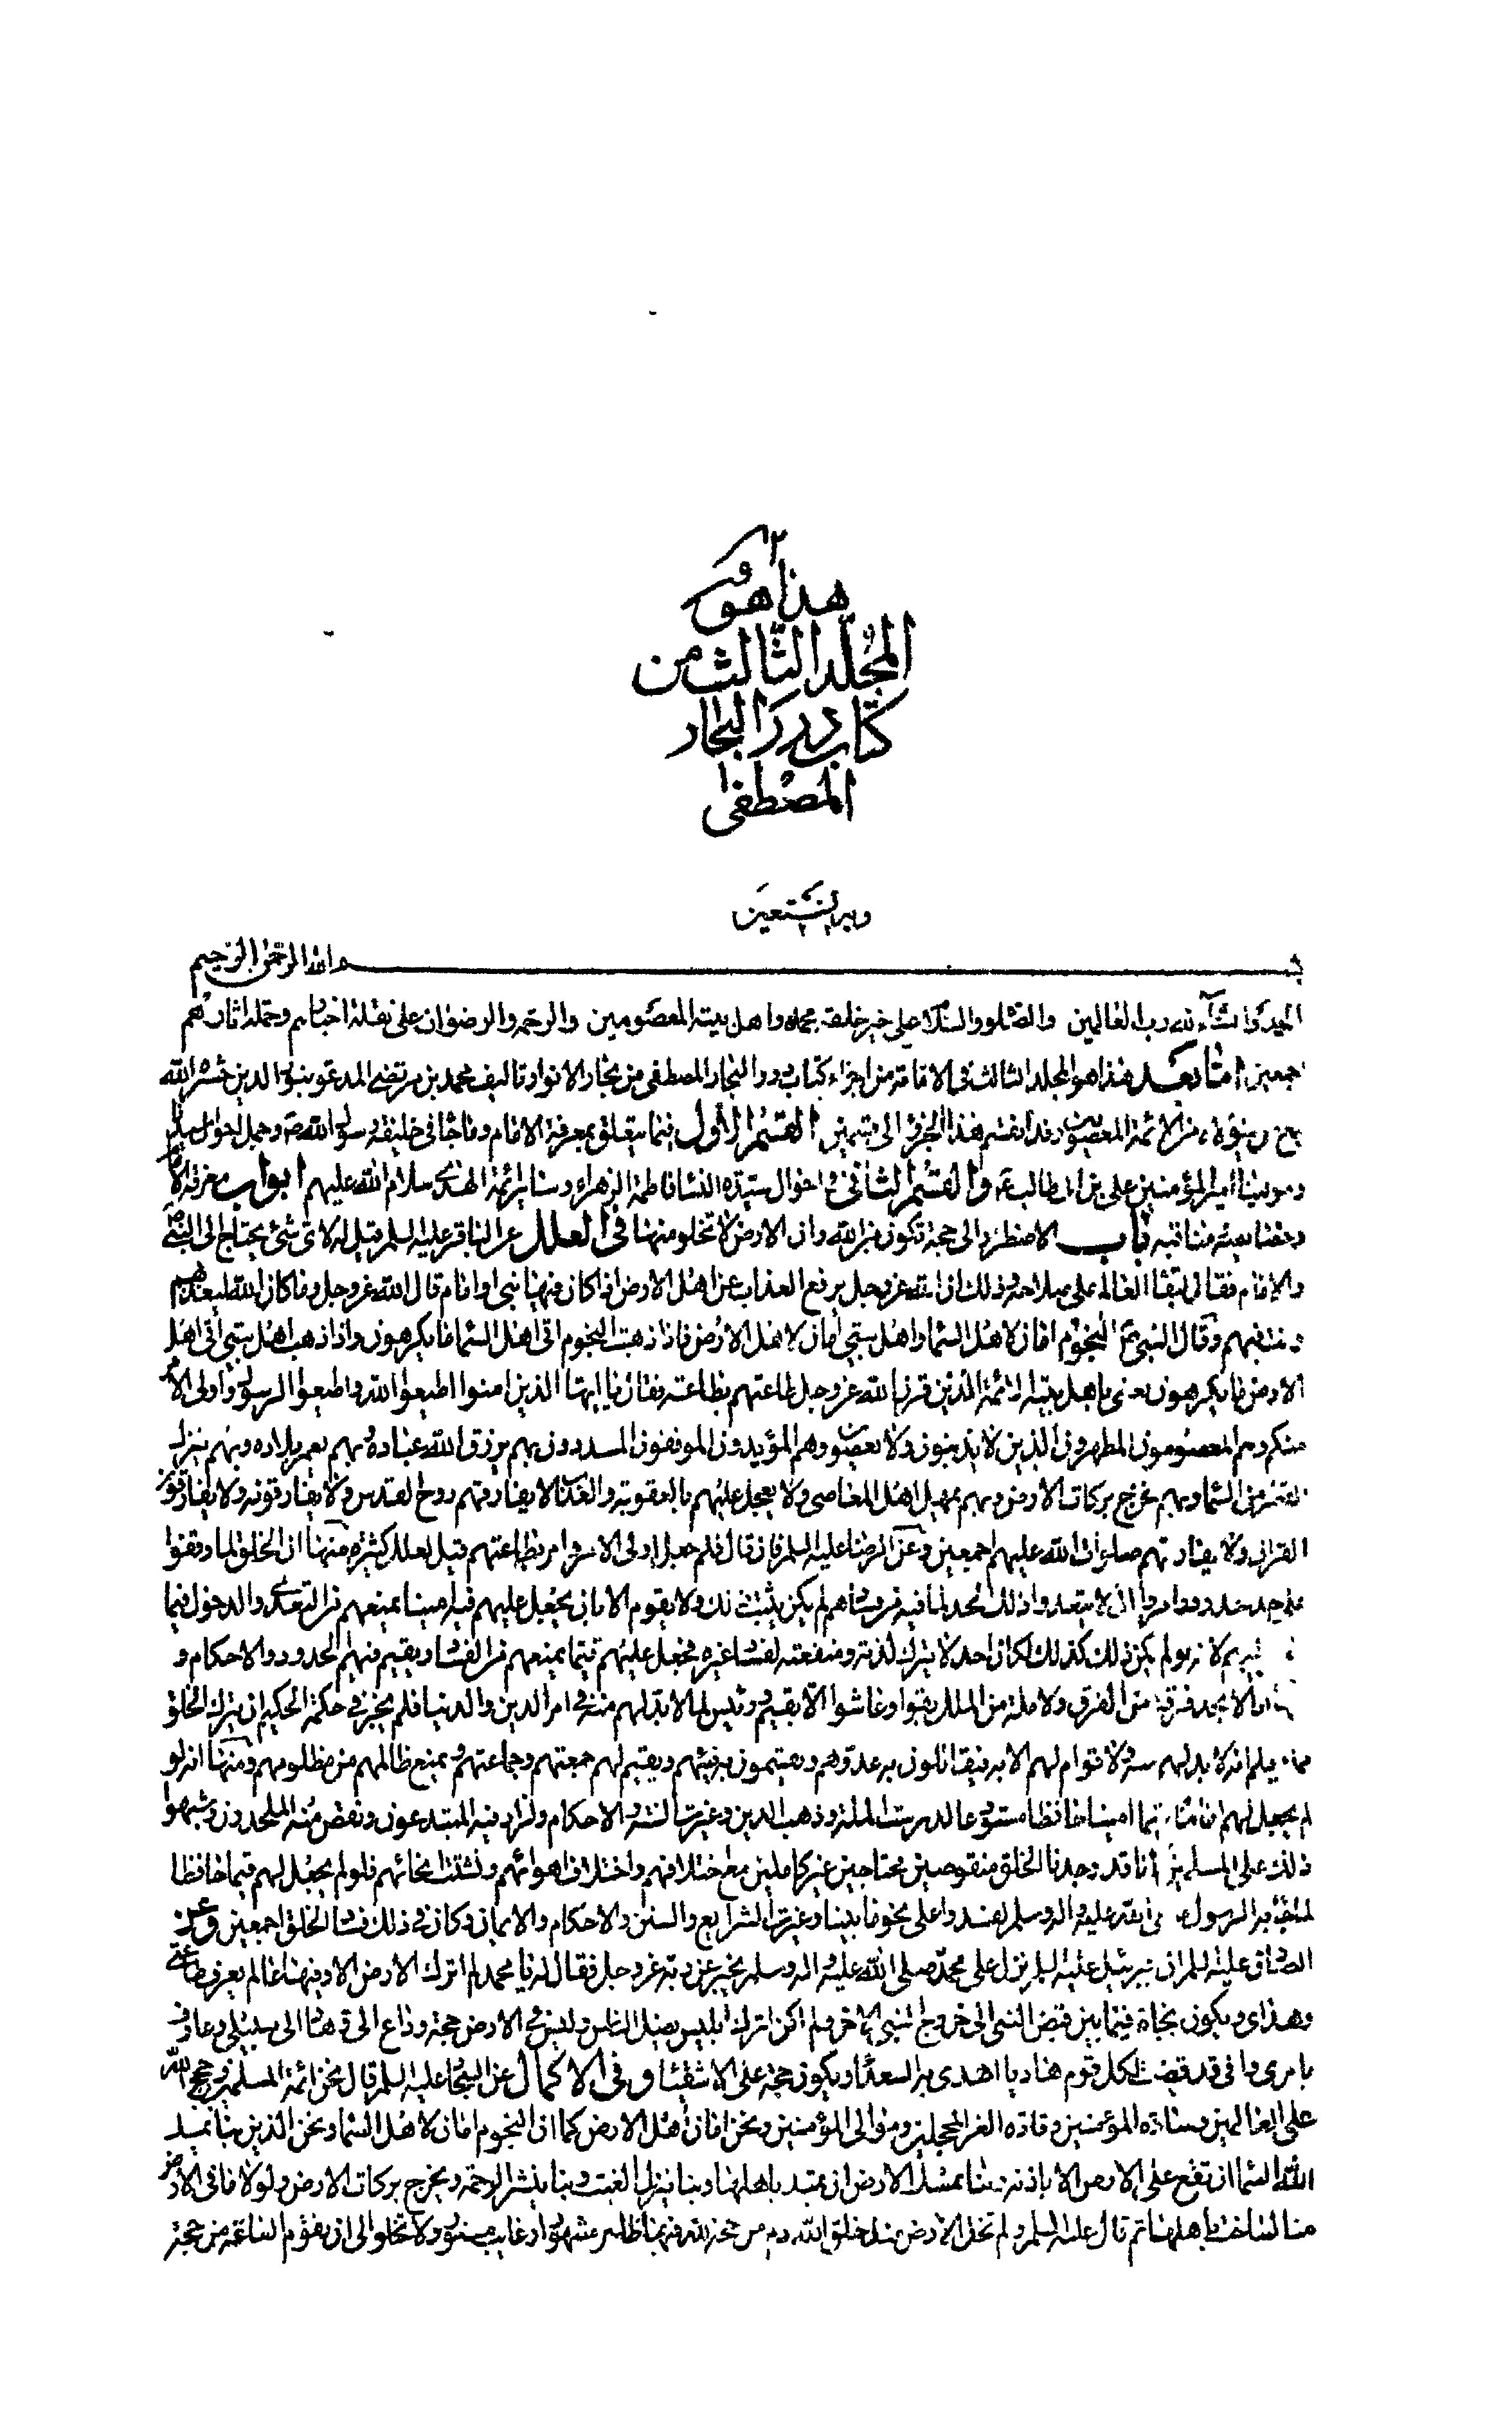 هذا هو
المجلد الثالث من
كتاب درر البحار
المصطفی
وبه نستعين
بسم الله الرحمن الرحيم
الحمد والثناء لله رب العالمين والصلوة والسلام على خير خلقه محمد واهل بيته المعصومين والرحمة والرضوان على نقلة اخبارهم وحملة اثارهم
اجمعين اما بعد فهذا هو المجلد الثالث في الامامة من اجزاء كتاب درر البحار المصطفى من بحار الانوار تاليف محمد بن مرتضى المدعو بنور الدين حشره الله
مع من الائمة المعصومين وقد انقسم هذا الجزؤ الى قسمين القسم الاول فيما يتعلق بمعرفة الامام وما جاء في خليفة رسول الله ص وجمل احوال
ومولينا أمير المؤمنين علي بن ابيطالب ع والقسم الثاني في احوال سيدة النساء فاطمة الزهراء وساير ائمة الهدى سلام الله عليهم ابواب معرفة الامام
مناقبه باب الاضطرار الى حجة تكون من الله وان الارض لا تخلو منها في العلل عن الباقر عليه السلم قيل له لاى شئ يحتاج الى النبي
والامام فقال لبقاء العالم على صلاحه وذلك ان الله عز وجل يرفع العذاب عن اهل الارض اذا كان فيها نبي او امام قال الله عز وجل وما كان الله ليعذبهم
وانت فيهم وقال النبي النجوم امان لاهل السماء واهل بيتي أمان لاهل الارض فاذا ذهبت النجوم اتى اهل السماء ما يكرهون واذا ذهب اهل بيتي أتى اهل
الارض ما يكرهون يعنى باهل بيته الائمة الذين قرن الله عز وجل طاعتهم بطاعته فقال يا ايها الذين امنوا اطيعوا الله واطيعوا الرسول واولى الامر
منكم وهم المعصومون المطهرون الذين لا يذنبون ولا يعصون وهم المؤيدون الموفقون المسددون بهم يرزق الله عباده وبهم يعمر بلاده وبهم ينزل
القطر من السماء وبهم تخرج بركات الارض وبهم يمهل اهل المعاصى ولا يعجل عليهم بالعقوبة والعذاب لا يفارقهم روح القدس ولا يفارقونه ولا يفارقون
القران ولا يفارقهم صلوات الله عليهم اجمعين وعن الرضا عليه السلم فان قال فلم جعل اولى الامر وامر بطاعتهم قيل لعلل كثيرة منها ان الخلق لما وقفوا
على حد محدود وامروا ان لا يتعدوا ذلك الحد لما فيه من فسادهم لم يكن يثبت ذلك ولا يقوم الا بان يجعل عليهم فيه امينا يمنعهم من التعدى والدخول فيما
لانه لو لم يكن ذلك كذلك لكان احد لا يترك لذته ومنفعته لفساد غيره فجعل عليهم قيما يمنعهم من الفساد ويقيم فيهم الحدود والاحكام و
انا لا نجد فرقة من الفرق ولا ملة من الملل بقوا وعاشوا الا بقيم ورئيس لما لا بد لهم منه في امر الدين والدنيا فلم يجز في حكمة الحكيم ان يترك الخلق
مما يعلم انه لا بد لهم منه ولا قوام لهم الا به فيقاتلون به عدوهم ويقسمون به فيئهم ويقيم لهم جمعتهم وجماعتهم ويمنع ظالمهم من مظلومهم ومنها انه لو
لم يجعل لهم اماما قيما امينا حافظا مستودعا لدرست الملة وذهب الدين وغيرت السنة والاحكام ولزاد فيه المبتدعون ونقص منه الملحدون وشبهوا
ذلك على المسلمين اذ قد وجدنا الخلق منقوصين محتاجين غير كاملين مع اختلافهم واختلاف اهوائهم وتشتت انحائهم فلو لم يجعل لهم قيما حافظا
لما جاء به الرسول صلى الله عليه واله وسلم لفسدوا على نحو ما بينا وغيرت الشرايع والسنن والاحكام والايمان وكان في ذلك فساد الخلق اجمعين وعن
الصادق عليه السلم ان جبرئيل عليه السلم نزل على محمد صلى الله عليه واله وسلم يخبر عن ربه عز وجل فقال له يا محمد لم اترك الارض الا وفيها عالم يعرف طاعتي
وهداى ويكون نجاة فيما بين قبض النبي الى خروج النبي الاخر ولم اكن اترك ابليس يضل الناس وليس في الارض حجة وداع الى وهاد الى سبيلي وعارف
بامرى وانى قد قضيت لكل قوم هاديا اهدى به السعداء ويكون حجة على الاشقياء وفي الاكمال عن السجاد عليه السلم قال نحن ائمة المسلمين وحجج الله
على العالمين وسادة المؤمنين وقادة الغر المحجلين وموالى المؤمنين ونحن امان أهل الارض كما ان النجوم امان لاهل السماء ونحن الذين بنا يمسك
الله السماء ان تقع على الارض الا باذنه وبنا يمسك الارض ان تميد باهلها وبنا ينزل الغيث وبنا ينشر الرحمة ويخرج بركات الارض ولولا ما فى الارض
منا لساخت باهلها ثم قال عليه السلم ولم تخل الارض منذ خلق الله ادم من حجة لله فيها ظاهر مشهور او غايب مستور ولا تخلو الى ان يقوم الساعة من حجة